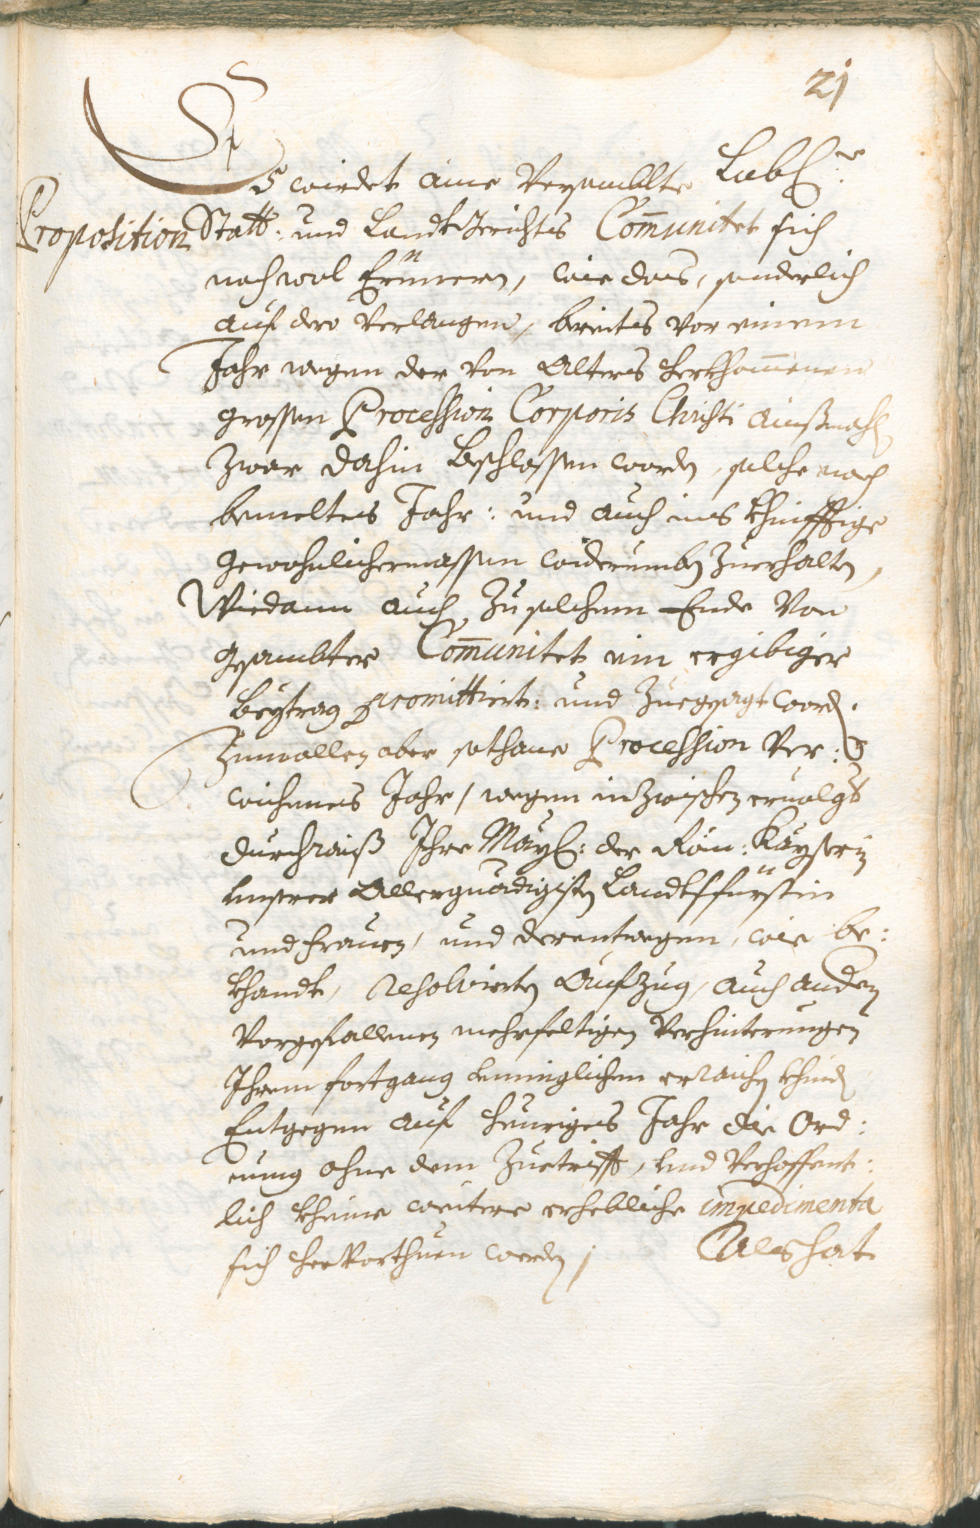 21
Es wirdet aine Versambllte Lobl:e
Proposition
Statt: und Landtgerichts Com̄unitet sich
noch wol Erinnern, wie das, sonderlich
auf dero verlangen, bereits vor einem
Jahr wegen der von Alters herkhom̄enen
grossen Procession Corporis Christi ainßmahls
zwar dahin beschlossen worden, solche nach
bemeltes Jahr: und auch ins khünfftige
gewohnlichermassen widerumben zuerhalten,
Wiedann auch zu solchem Ende von
gesambter Com̄unitet ein ergibiger
Beytrag promittiert: und zuegesagt worden.
Zumallen aber sothane Procession ver:
wichenes Jahr, wegen inzwischen ervolgts
durchraiß Ihro Mayl: der Röm: Kayserin
unserer Allergnädigisten Landtsfürstin
und Frauen, und derentwegen, wie be:
khandt, resolvierten Aufzug, auch andern
vorgefallenen mehrfeltigen Verhinterungen
Ihren fortgang kheineglichen erraichen khinden
Entgegen auf heüriges Jahr die Ord:
nung ohne dem Zuetrifft, und verhoffent:
lich kheine weitere erhebliche impedimenta
sich hervorthuen werden; Als hat